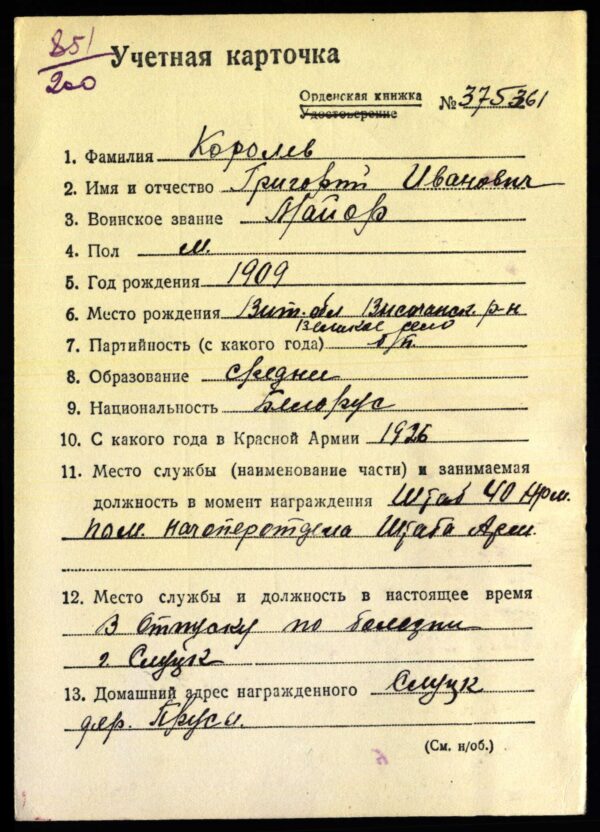 851
200
Учетная карточка
Орденская книжка
Удостоверение
№ 375361
1. Фамилия Королев
2. Имя и отчество Григорий Иванович
3. Воинское звание Майор
4. Пол м.
5. Год рождения 1909
6. Место рождения Вит. обл р-н
Великое село
7. Партийность (с какого года) б/п.
8. Образование средни
9. Национальность Белорус
10. С какого года в Красной Армии 1926
11. Место службы (наименование части) и занимаемая
должность в момент награждения Штаб 40 Арм.
пом. начоперотдела Штаба Арм.
12. Место службы и должность в настоящее время
В Отпуску по болезни
г. Слуцк
13. Домашний адрес награжденного Слуцк
дер. Прусы.
(См. н/об.)